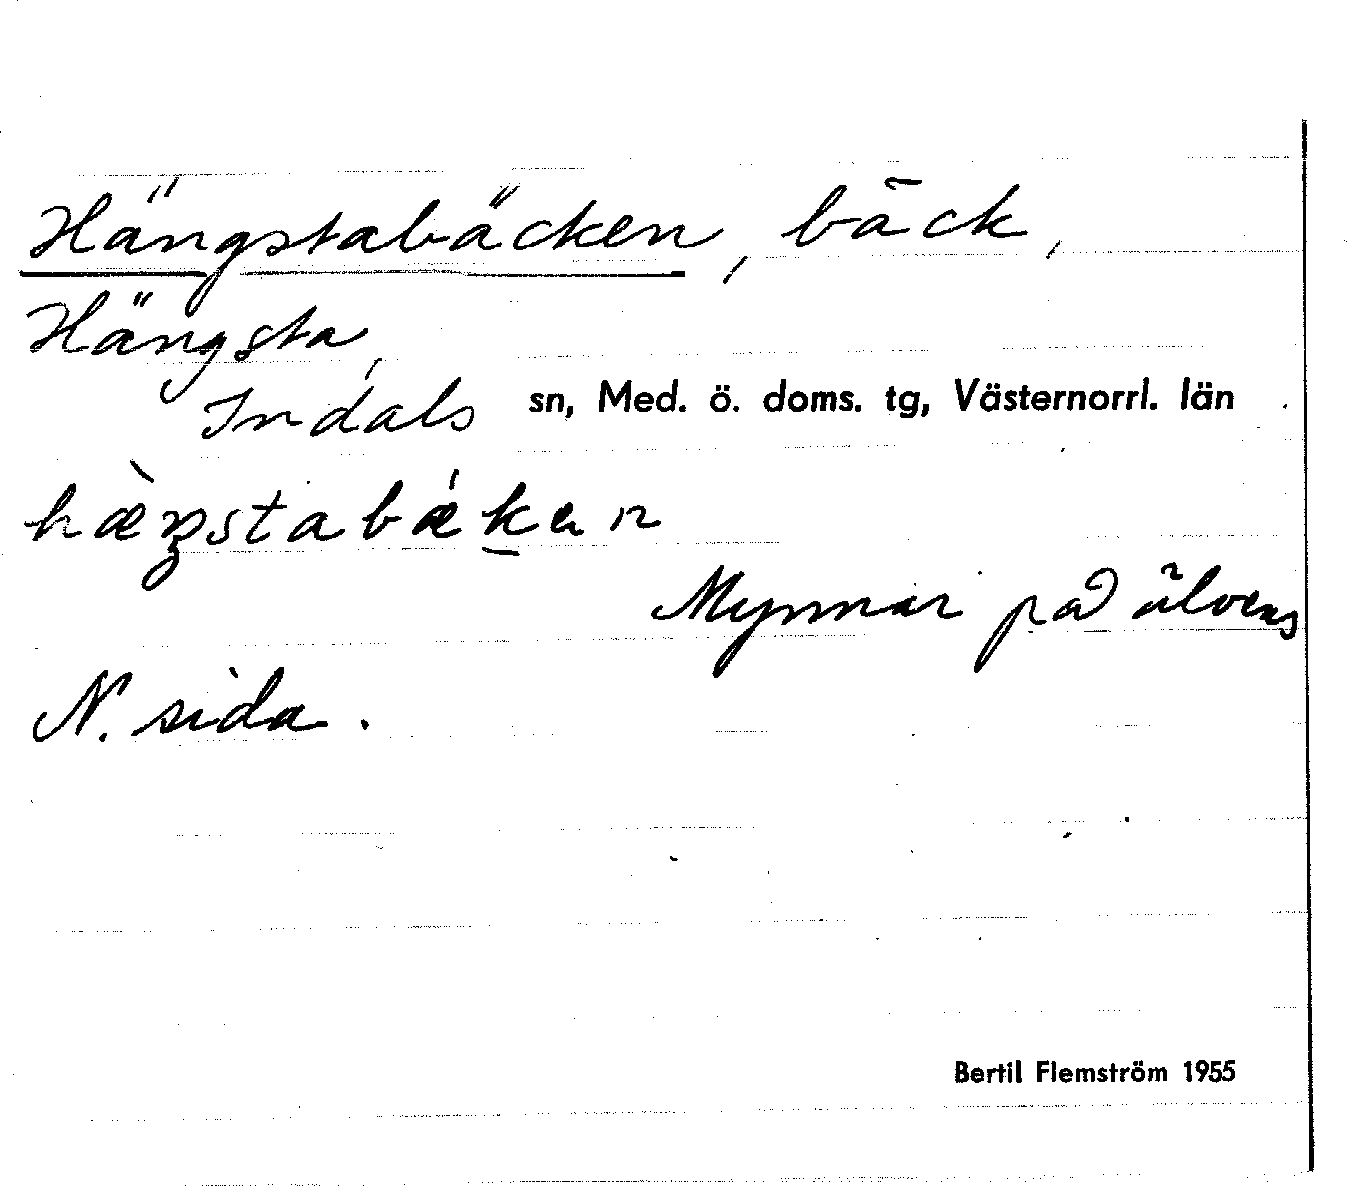 Hängstabäcken, bäck,
Hängsta,
Indals sn, Med. ö. doms. tg, Västernorrl. län
hæ̀ŋstabǽkan
Mynnar på älvens
N. sida.
Bertil Flemström 1955